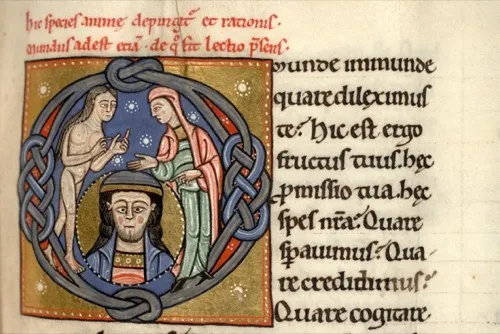 hic species anime depingit᷑ et rationis.
Mundus adest etiā. de q̊ fit lectio p̄sens.
O munde immunde
quare dileximus
te? Hic est ergo
fructus tuus. hęc
ꝓmissio tua. hęc
spes nr̄a. Quare
sꝑauimus? Qua-
re credidimus?
Quare cogitare